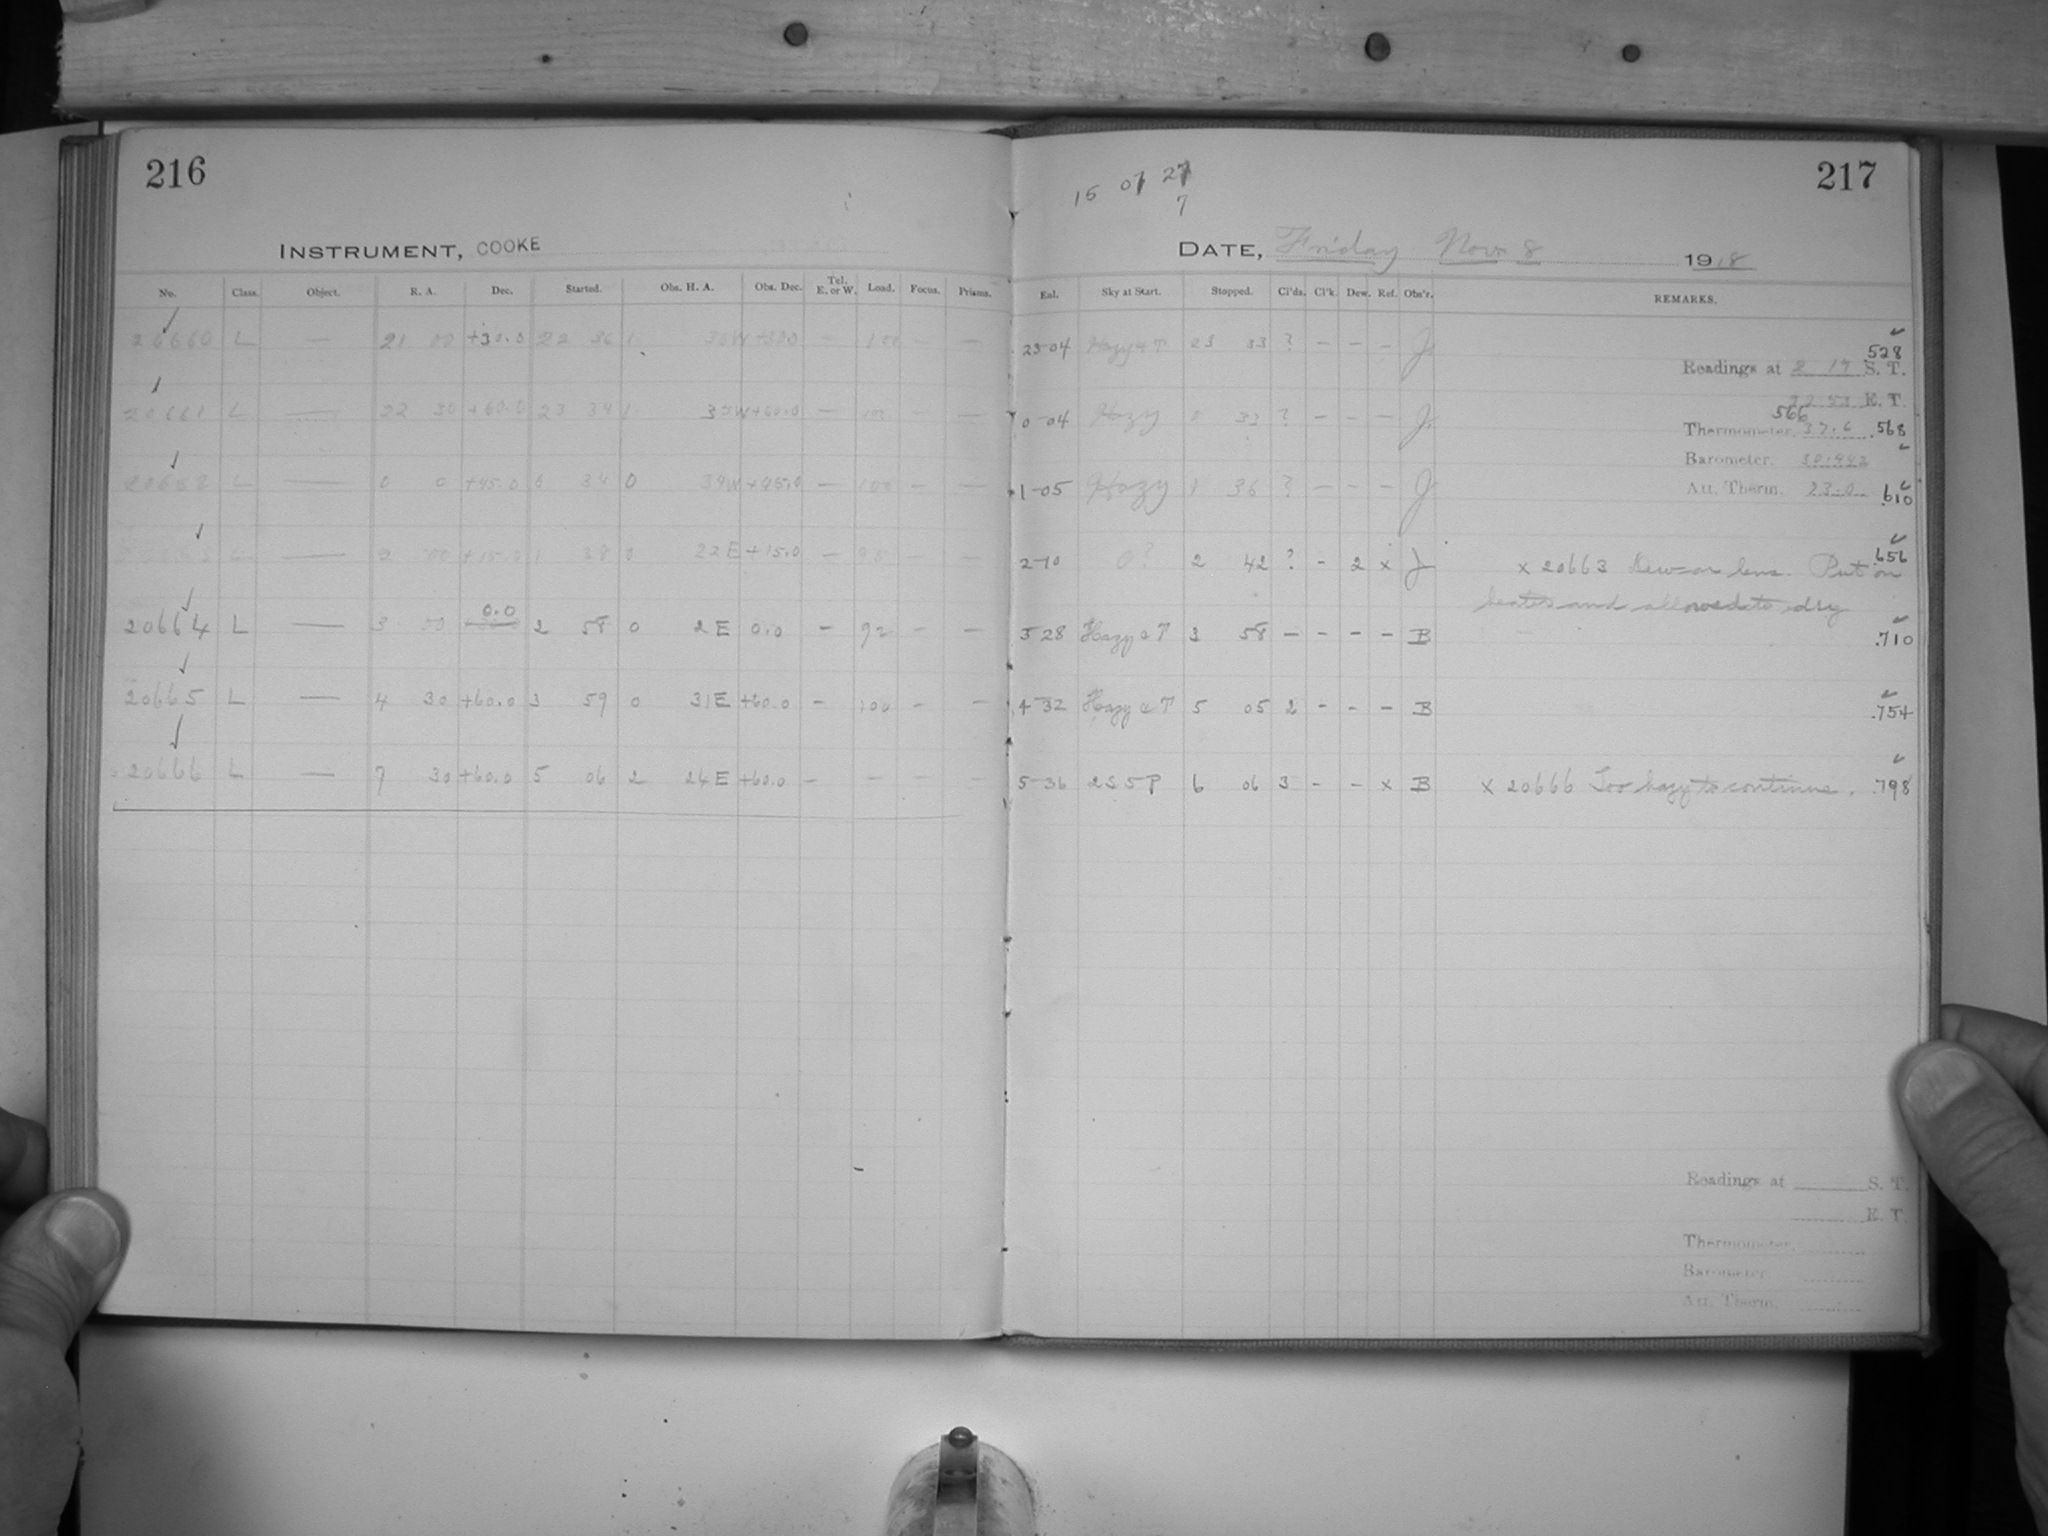 216
INSTRUMENT, COOKE
No. Class. Object. R. A. Dec. Started. Obs. H. A. Obs. Dec. Tel. E. or W. Load. Focus. Prisms.
20660 L — 21 00 +30.0 22 36 1 36W +30.0 — 100 — —
20661 L — 22 30 +60.0 23 34 1 35W +60.0 — 100 — —
20662 L — 0 0 +45.0 0 34 0 39W +45.0 — 100 — —
L — 2 00 +15.0 1 38 0 22E +15.0 — 95 — —
20664 L — 3 00 0.0 2 58 0 2E 0.0 — 92 — —
20665 L — 4 30 +60.0 3 59 0 31E +60.0 — 100 — —
20666 L — 7 30 +60.0 5 06 2 24E +60.0 — — — —
217
15 07 27
7
DATE, Friday Nov. 8 1918
Exl. Sky at Start. Stopped. Cl'ds. Cl'k. Dew. Ref. Obs'r. REMARKS.
23-04 Hazy & T 23 33 ? — — — J. .528
Readings at 2 17 S. T.
22 53 E. T.
566
0-04 Hazy 0 33 ? — — — J. Thermometer, 37.6 .568
Barometer. 30.442
1-05 Hazy 1 36 ? — — — J. Att. Therm. 23.0 .610
2-10 0? 2 42 ? - 2 x J x 20663 Dew on lens. Put on .656
heater and allowed to dry
3-28 Hazy & T 3 58 — — — — B .710
4-32 Hazy & T 5 05 2 - - - B .754
5-36 2S 5P 6 06 3 - - x B x 20666 Too hazy to continue. .798
Readings at S. T.
E. T.
Thermometer,
Barometer
Att. Therm.